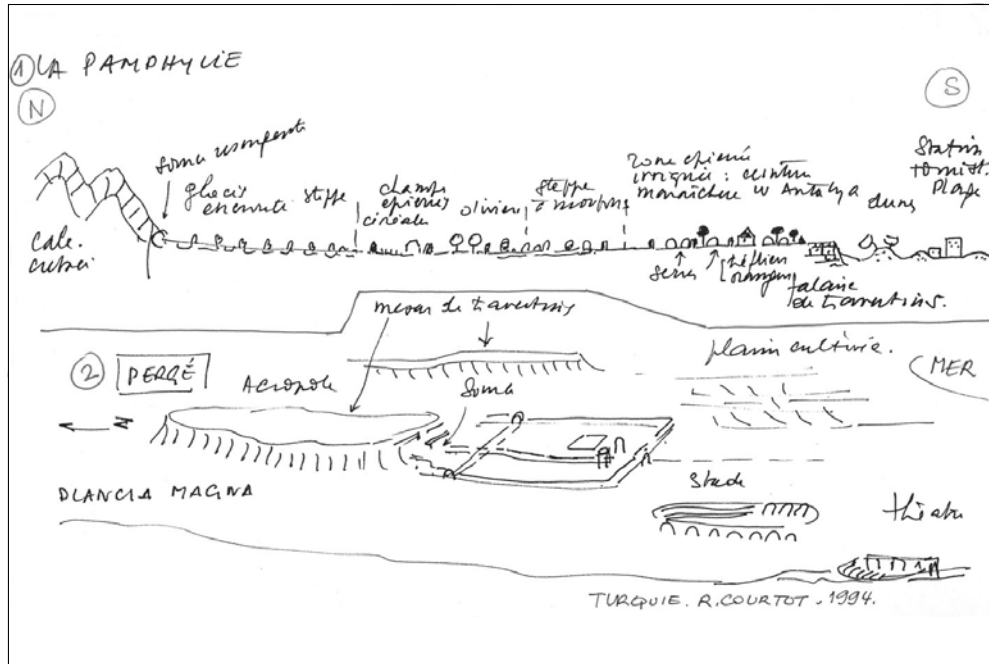 ① LA PAMPHYLIE
N
S
source resurgente
glacis encrouté
steppe
champs épierrés
céréale
oliviers
steppe
zone épierrée
irriguée : ceinture
maraichère de Antalya
dunes
Station
tourist.
Plage
calc.
serres
orangers
falaise
de travertins.
mesas de travertins
② PERGÉ
Acropole
Source
plaine cultivée.
MER
N
PLANCIA MAGNA
Stade
théatre
TURQUIE. R.COURTOT. 1994.